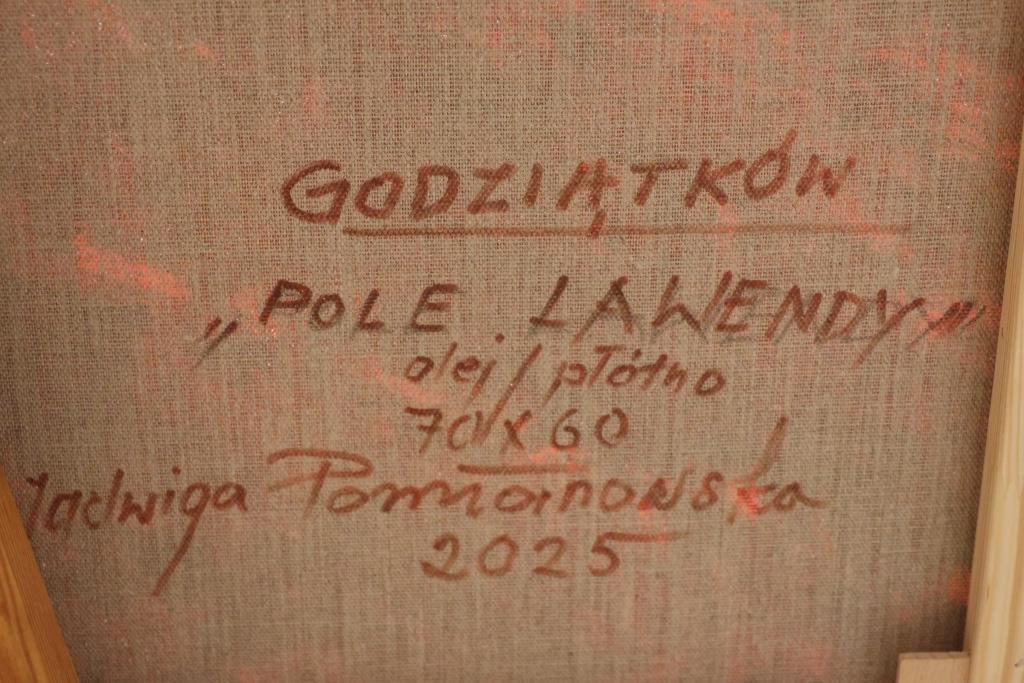 GODZIĄTKÓW
„POLE LAWENDY”
olej/płótno
70x60
Jadwiga Pomianowska
2025